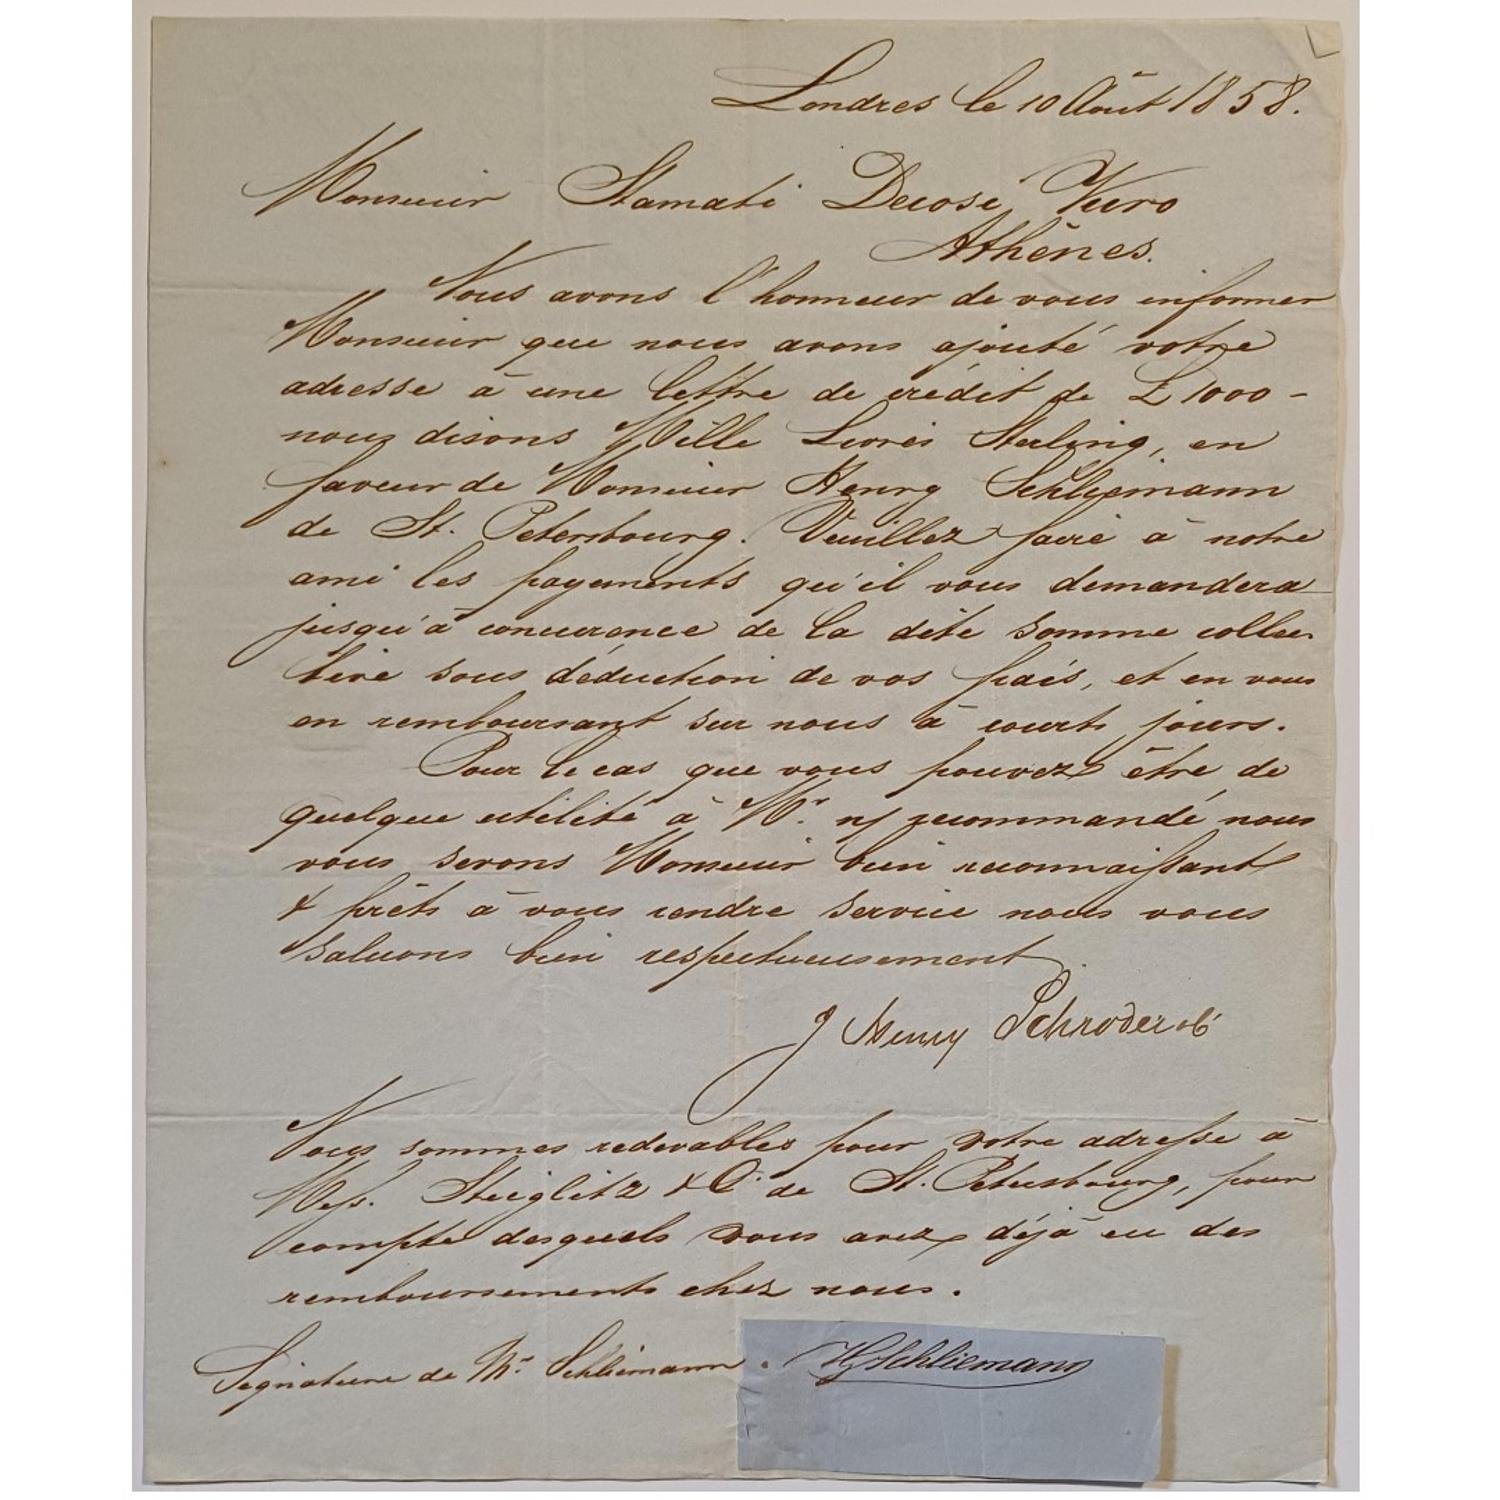 Londres le 10 Août 1858.
Monsieur Stamati Decosi Vuro
Athènes.
Nous avons l'honneur de vous informer
Monsieur que nous avons ajouté votre
adresse à une lettre de crédit de £ 1000 -
nous disons Mille Livres Sterling, en
faveur de Monsieur Henry Schliemann
de St. Petersbourg. Veuillez faire à notre
ami les payements qu'il vous demandera
jusqu'à concurence de la dite somme collec
tive sous déduction de vos frais, et en vous
en remboursant sur nous à courts jours.
Pour le cas que vous pouvez être de
quelque utilité à Mr. n/ recommandé nous
vous serons Monsieur bien reconnaissants
& prêts à vous rendre service nous vous
saluons bien respectueusement
J Henry Schroder & Co
Nous sommes redevables pour votre adresse à
Mess. Steiglitz & Co. de St. Petersbourg, pour
compte desquels vous avez déjà eu des
remboursements chez nous.
Signature de Mr. Schliemann. HySchliemann